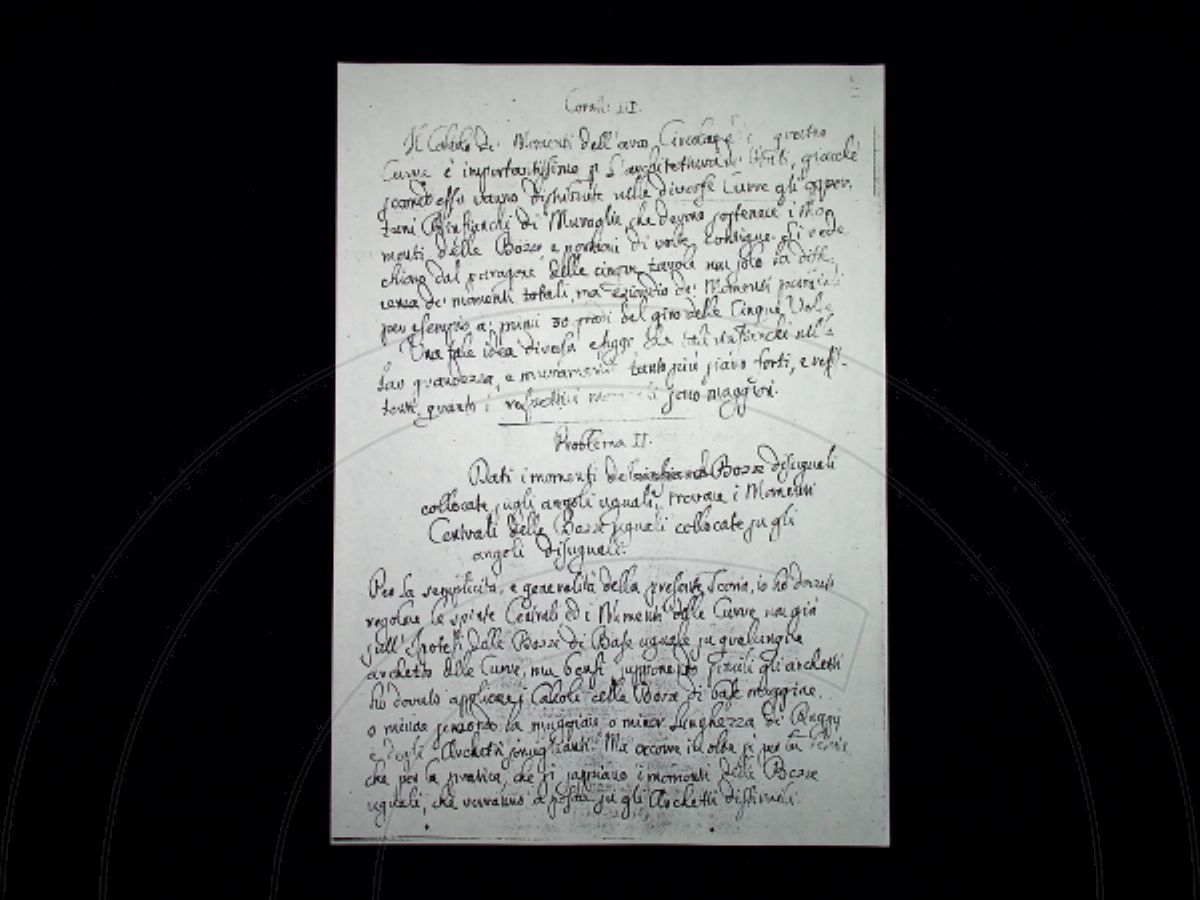 Coroll: III.
Il Calcolo de' Momenti dell'arco Circolare
Curve è importantissimo p l'architettura giacchè
secondo esso vanno distribuite nelle diverse Curve gli oppor-
tuni Rinfianchi di Muraglie, che devono sostenere i mo-
menti delle Bozze e porzioni di volte contigue. Si vede
chiaro dal paragone delle cinque tavole non solo la diffe-
renza de' momenti totali, ma eziandio de' Momenti parziali
per esempio a' primi 30 gradi del giro delle Cinque Volte
Una tale idea diversa esige che tali rinfianchi nella
loro grandezza, e muramenti tanto più siano forti, e resis-
tenti, quanto i rispettivi momenti sono maggiori.
Problema II.
Dati i momenti delle Bozze disuguali
collocate sugli angoli uguali, trovare i Momenti
Centrali delle Bozze uguali collocate su gli
angoli disuguali.
Per la semplicità, e generalità della presente Teoria, io ho dovuto
regolare le spinte Centrali ed i Momenti delle Curve non già
sull'Ipotesi delle Bozze di Base uguale su qualunque
archetto delle Curve, ma bensì supponendo simili gli archetti
ho dovuto applicare i Calcoli alle Bozze di base maggiore,
o minore secondo la maggiore o minor lunghezza di Raggi
e degli Archetti simiglianti. Ma occorre in oltre sì per la Teoria
che per la pratica, che si sappiano i momenti delle Bozze
uguali, che verranno a posare su gli Archetti dissimili